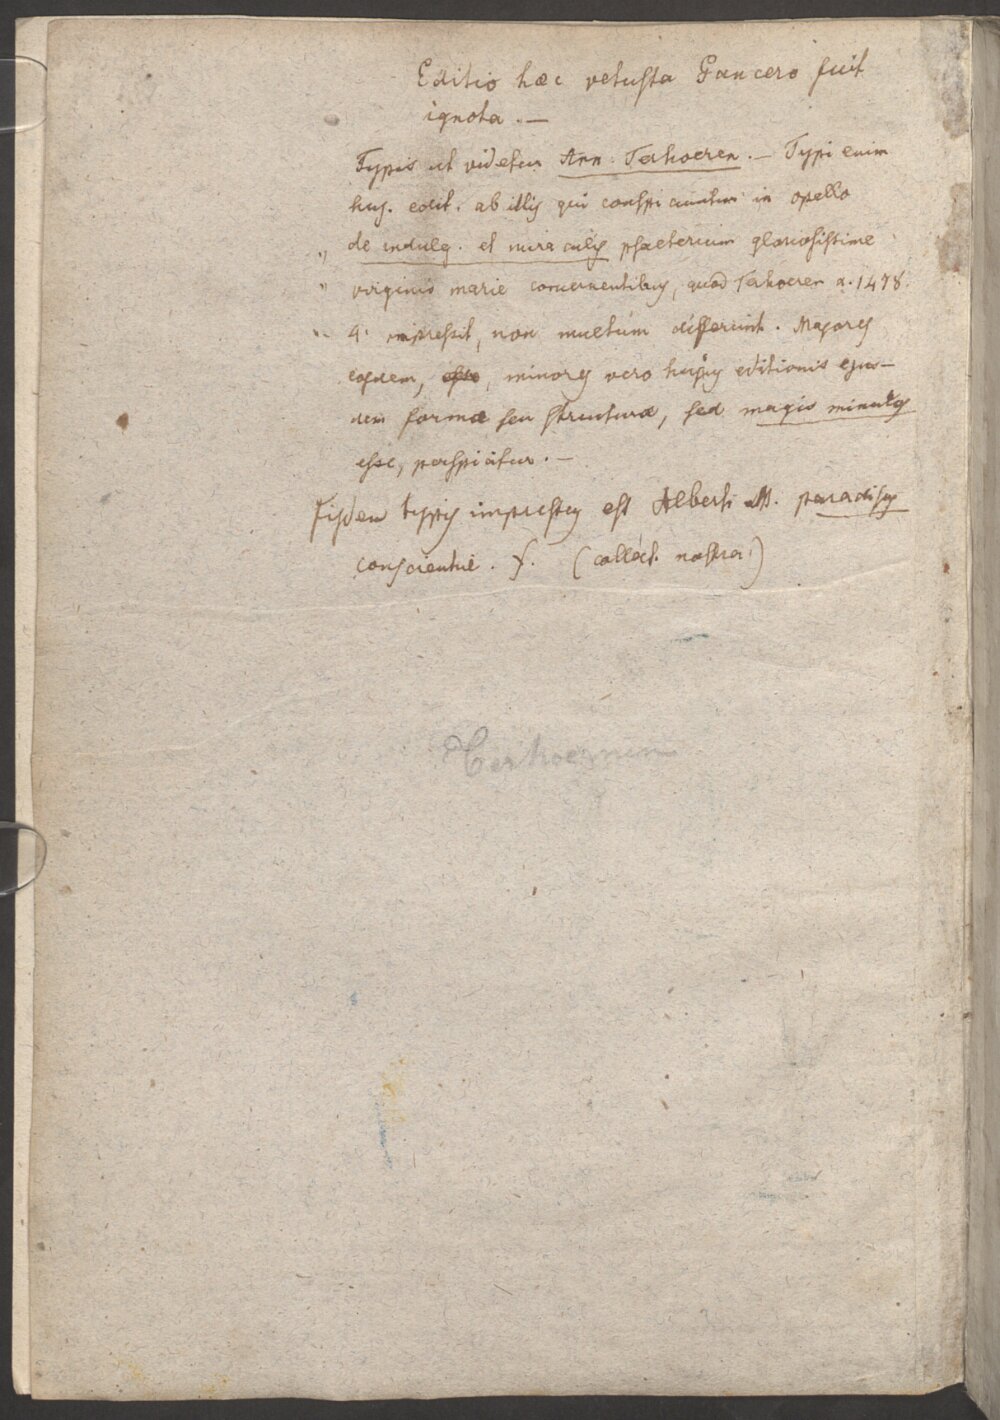 Editio hæc vetusta Panzero fuit
ignota. —
Typis ut videtur Arn. Terhoeren. — Typi enim
huj. edit. ab illis qui conspiciuntur in opello
" de indulg. et miraculis psalterium gloriosissime
" virginis marie concernentibus, quod Terhoeren a. 1478.
" 4. impressit, non multum differunt. Majores
eosdem, minores vero hujus editionis ejus-
dem formæ seu structuræ, sed magis minutos
esse, perspicitur. —
Iisdem typis impressus est Alberti M. paradisus
conscientiæ. f. (collect. nostra)
Terhoernen